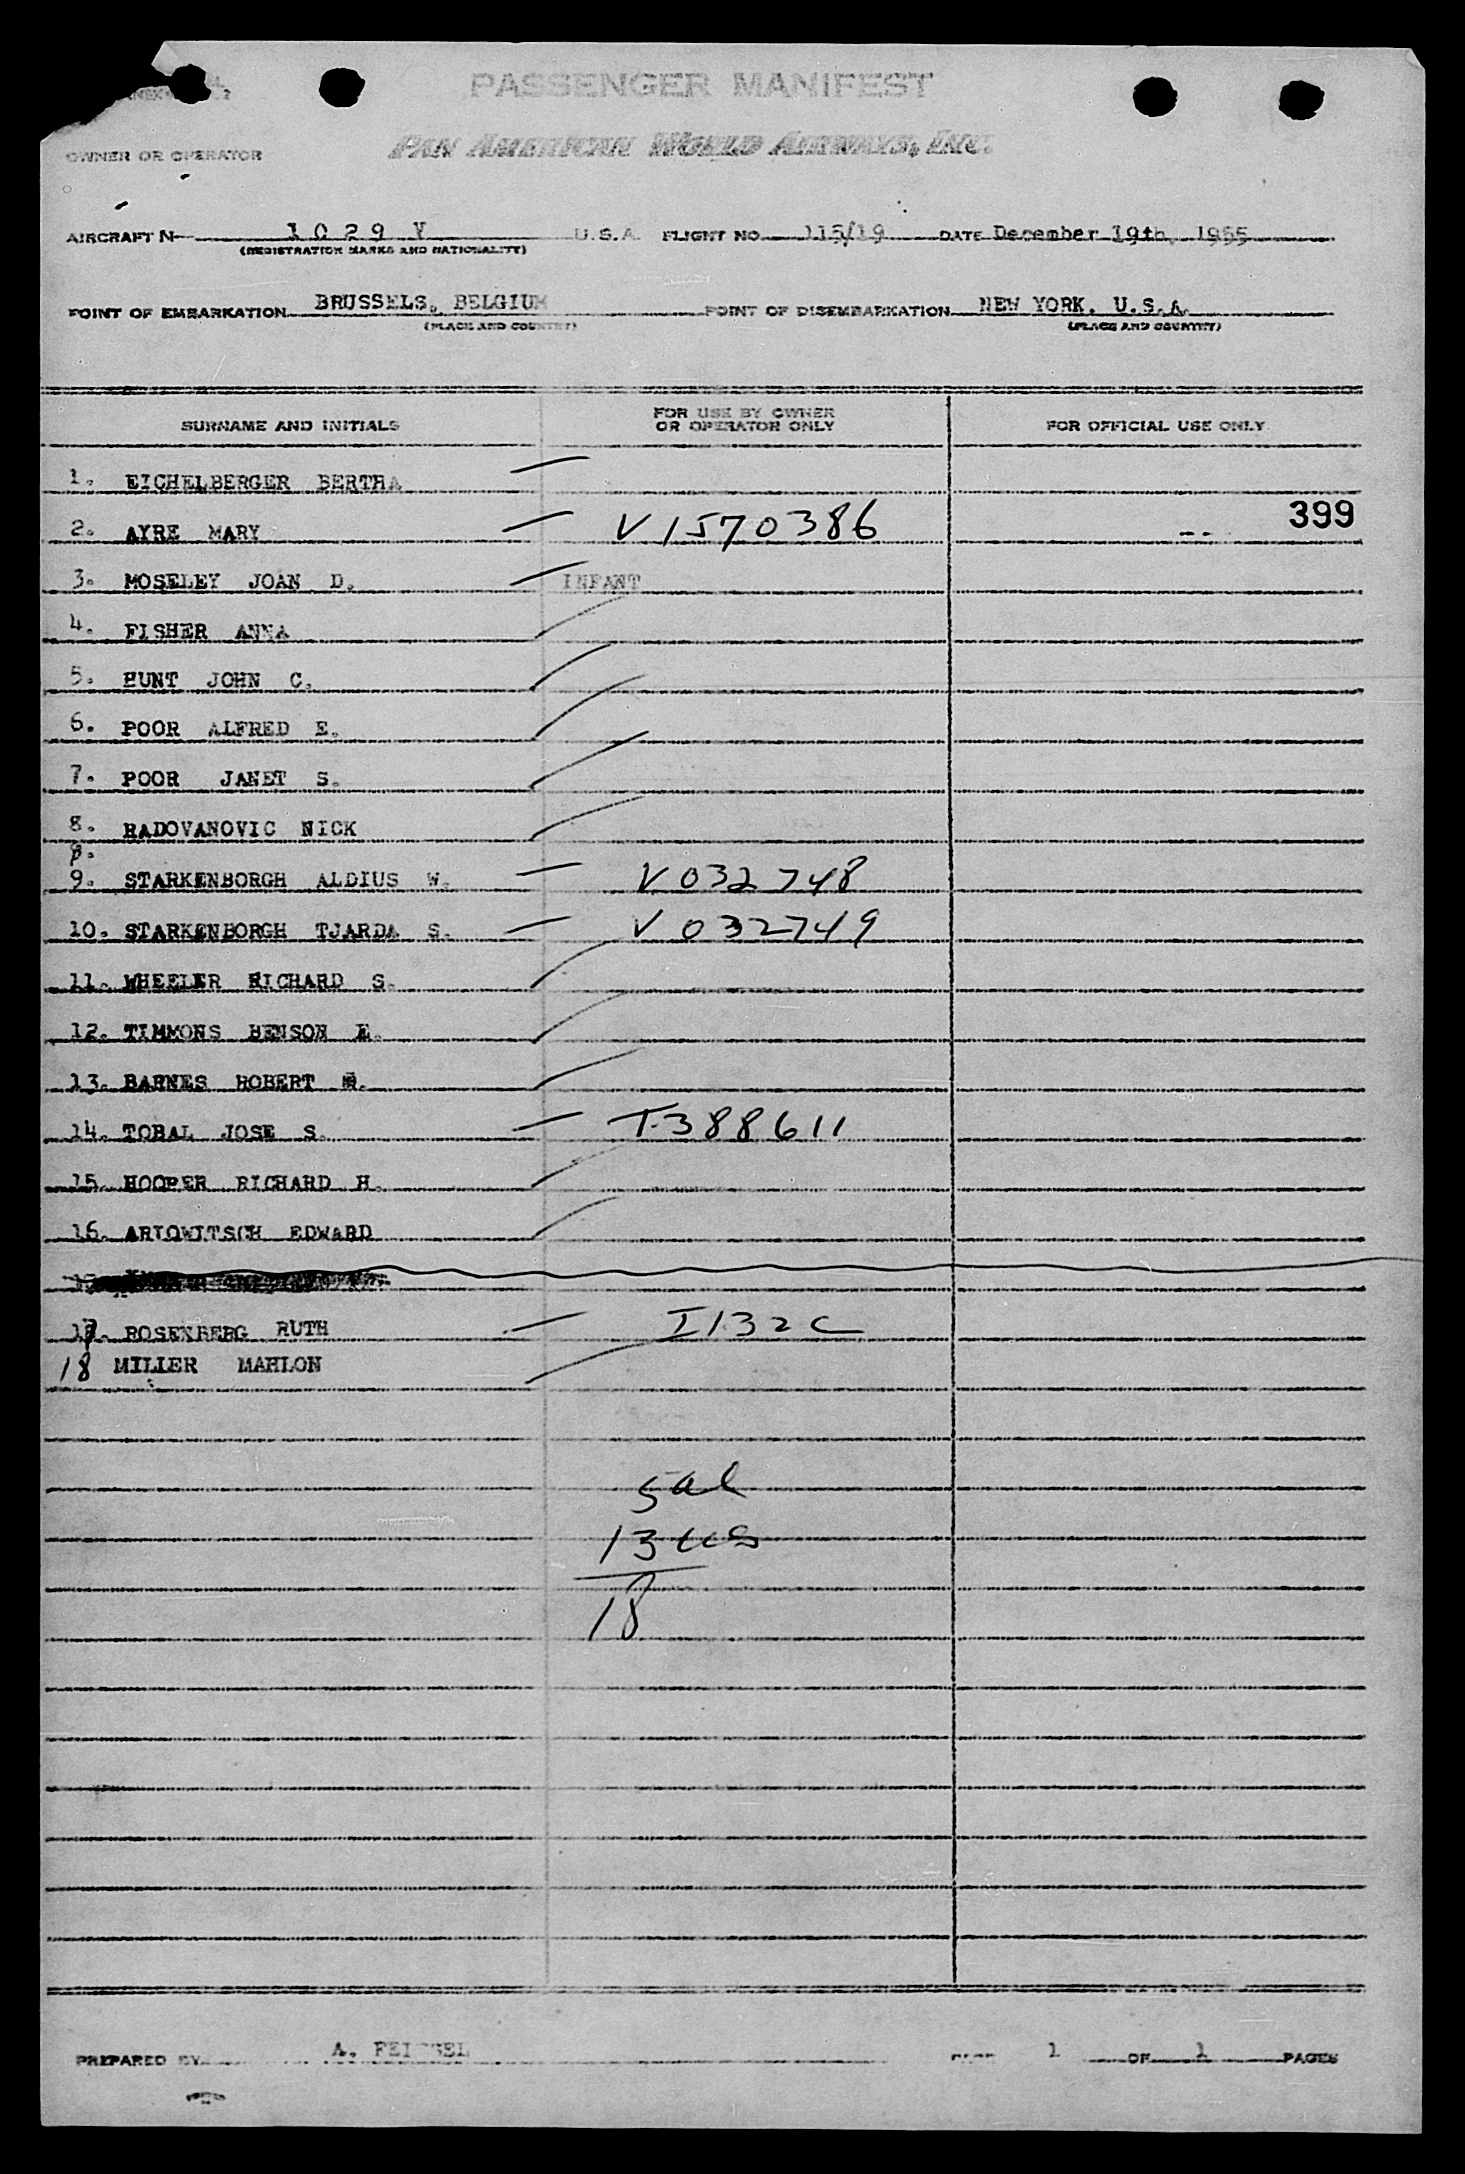 PASSENGER MANIFEST
OWNER OR OPERATOR PAN AMERICAN WORLD AIRWAYS, INC.
AIRCRAFT N 1029 V U.S.A. FLIGHT NO. 115/19 DATE December 19th, 1955
(REGISTRATION MARKS AND NATIONALITY)
POINT OF EMBARKATION BRUSSELS, BELGIUM POINT OF DISEMBARKATION NEW YORK, U.S.A.
(PLACE AND COUNTRY) (PLACE AND COUNTRY)
SURNAME AND INITIALS FOR USE BY OWNER OR OPERATOR ONLY FOR OFFICIAL USE ONLY
1. EICHELBERGER BERTHA
2. AYRE MARY V1570386 -- 399
3. MOSELEY JOAN D. INFANT
4. FISHER ANNA
5. HUNT JOHN C.
6. POOR ALFRED E.
7. POOR JANET S.
8. RADOVANOVIC NICK
9. STARKENBORGH ALDIUS W. V032748
10. STARKENBORGH TJARDA S. V032749
11. WHEELER RICHARD S.
12. TIMMONS BENSON E.
13. BARNES ROBERT
14. TOBAL JOSE S. T-388611
15. HOOPER RICHARD H.
16. ARIOWITSCH EDWARD
17. ROSENBERG RUTH I132C
18 MILLER MAHLON
5 al
13 us
18
PREPARED BY A. PAGE 1 OF 1 PAGES